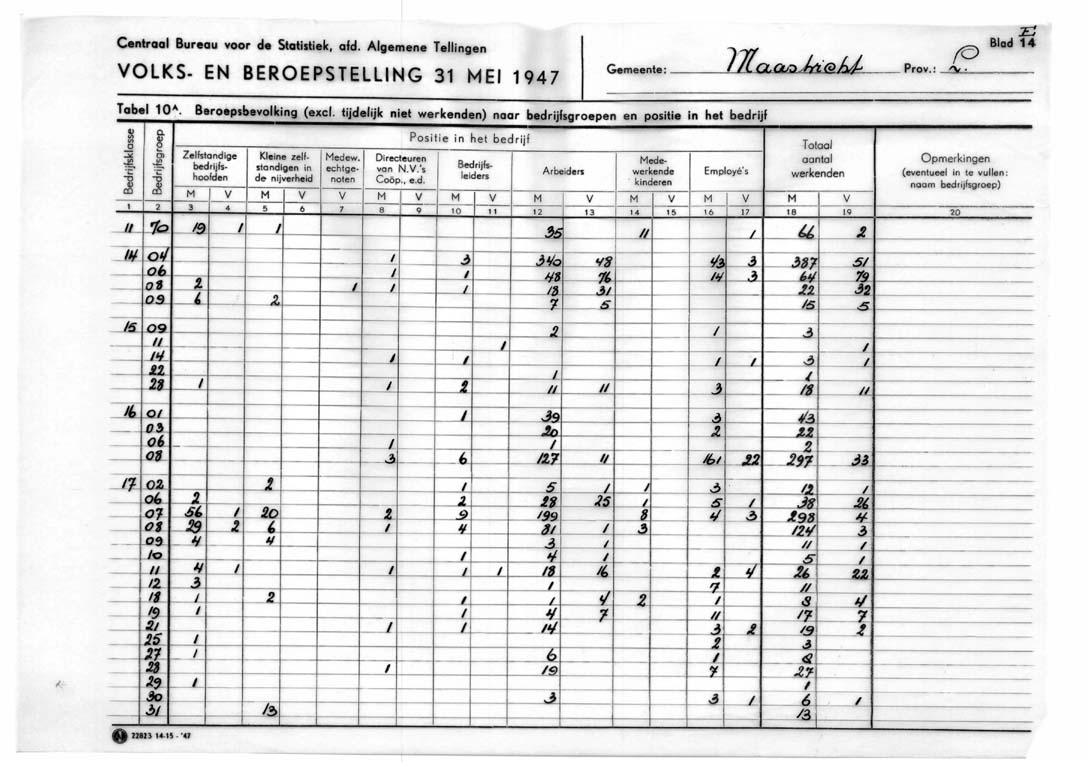 E
Blad 14
Centraal Bureau voor de Statistiek, afd. Algemene Tellingen
VOLKS- EN BEROEPSTELLING 31 MEI 1947
Gemeente: Maastricht Prov.: L.
Tabel 10A. Beroepsbevolking (excl. tijdelijk niet werkenden) naar bedrijfsgroepen en positie in het bedrijf
Bedrijfsklasse Bedrijfsgroep Positie in het bedrijf Totaal aantal werkenden Opmerkingen (eventueel in te vullen: naam bedrijfsgroep)
Zelfstandige bedrijfs-hoofden Kleine zelf-standigen in de nijverheid Medew. echtge-noten Directeuren van N.V.'s Coöp., e.d. Bedrijfs-leiders Arbeiders Mede-werkende kinderen Employé's
M V M V V M V M V M V M V M V M V
1 2 3 4 5 6 7 8 9 10 11 12 13 14 15 16 17 18 19 20
11 70 19 1 1 35 11 1 66 2
14 04 1 3 340 48 43 3 387 51
06 1 1 48 76 14 3 64 79
08 2 1 1 1 18 31 22 32
09 6 2 7 5 15 5
15 09 2 1 3
11 1 1
14 1 1 1 1 3 1
22 1 1
28 1 1 2 11 11 3 18 11
16 01 1 39 3 43
03 20 2 22
06 1 1 2
08 3 6 127 11 161 22 297 33
17 02 2 1 5 1 1 3 12 1
06 2 2 28 25 1 5 1 38 26
07 56 1 20 2 9 199 8 4 3 298 4
08 29 2 6 1 4 81 1 3 124 3
09 4 4 3 1 11 1
10 1 4 1 5 1
11 4 1 1 1 1 18 16 2 4 26 22
12 3 1 7 11
18 1 2 1 1 4 2 1 8 4
19 1 1 4 7 11 17 7
21 1 1 14 3 2 19 2
25 1 2 3
27 1 6 1 8
28 1 19 7 27
29 1 1
30 3 3 1 6 1
31 13 13
22823 14-15 - '47